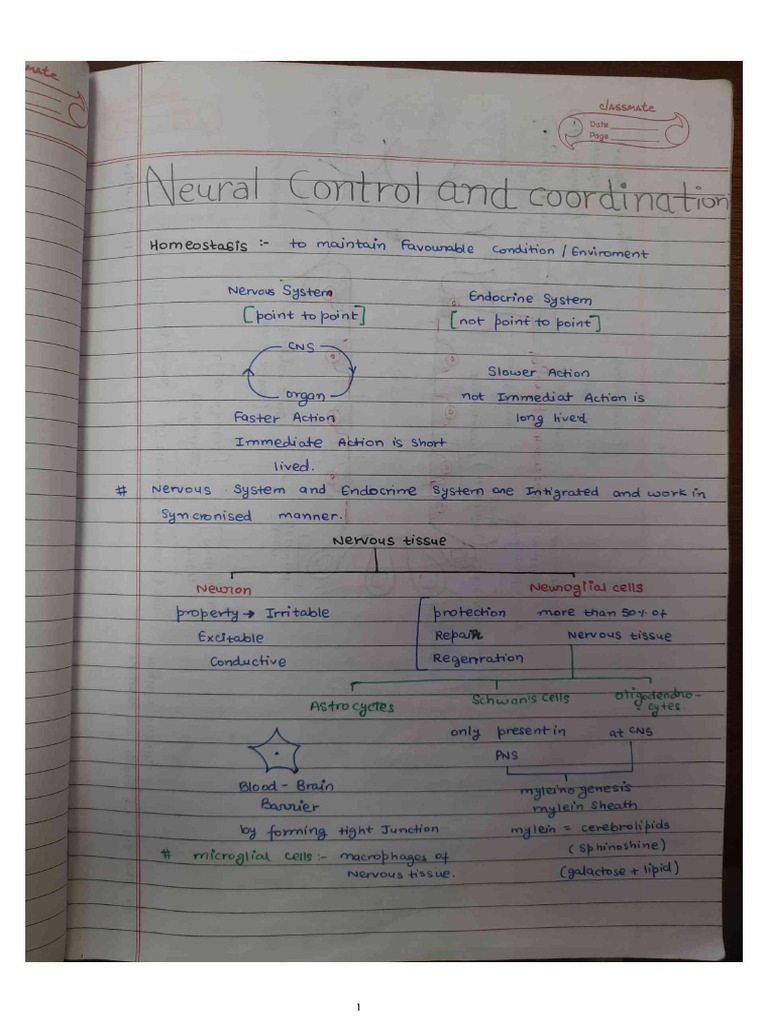 mate
classmate
Date
Page
Neural Control and coordination
Homeostasis :- to maintain Favourable condition / Enviroment
Nervous System
[point to point]
Endocrine System
[not point to point]
CNS
organ
Faster Action
Immediate Action is short
lived.
Slower Action
not Immediat Action is
long lived
# Nervous System and Endocrime System are Intigrated and work in
Syncronised manner.
Nervous tissue
Neuron
property → Irritable
Excitable
Conductive
Neuroglial cells
protection
Repair
Regenration
more than 50% of
Nervous tissue
Astrocytes
Schwan's cells
oligodendro-
cytes
Blood - Brain
Barrier
by forming tight Junction
only present in
PNS
at CNS
myleino genesis
mylein sheath
mylein = cerebrolipids
(sphinoshine)
(galactose + lipid)
# microglial cells :- macrophages of
Nervous tissue.
1